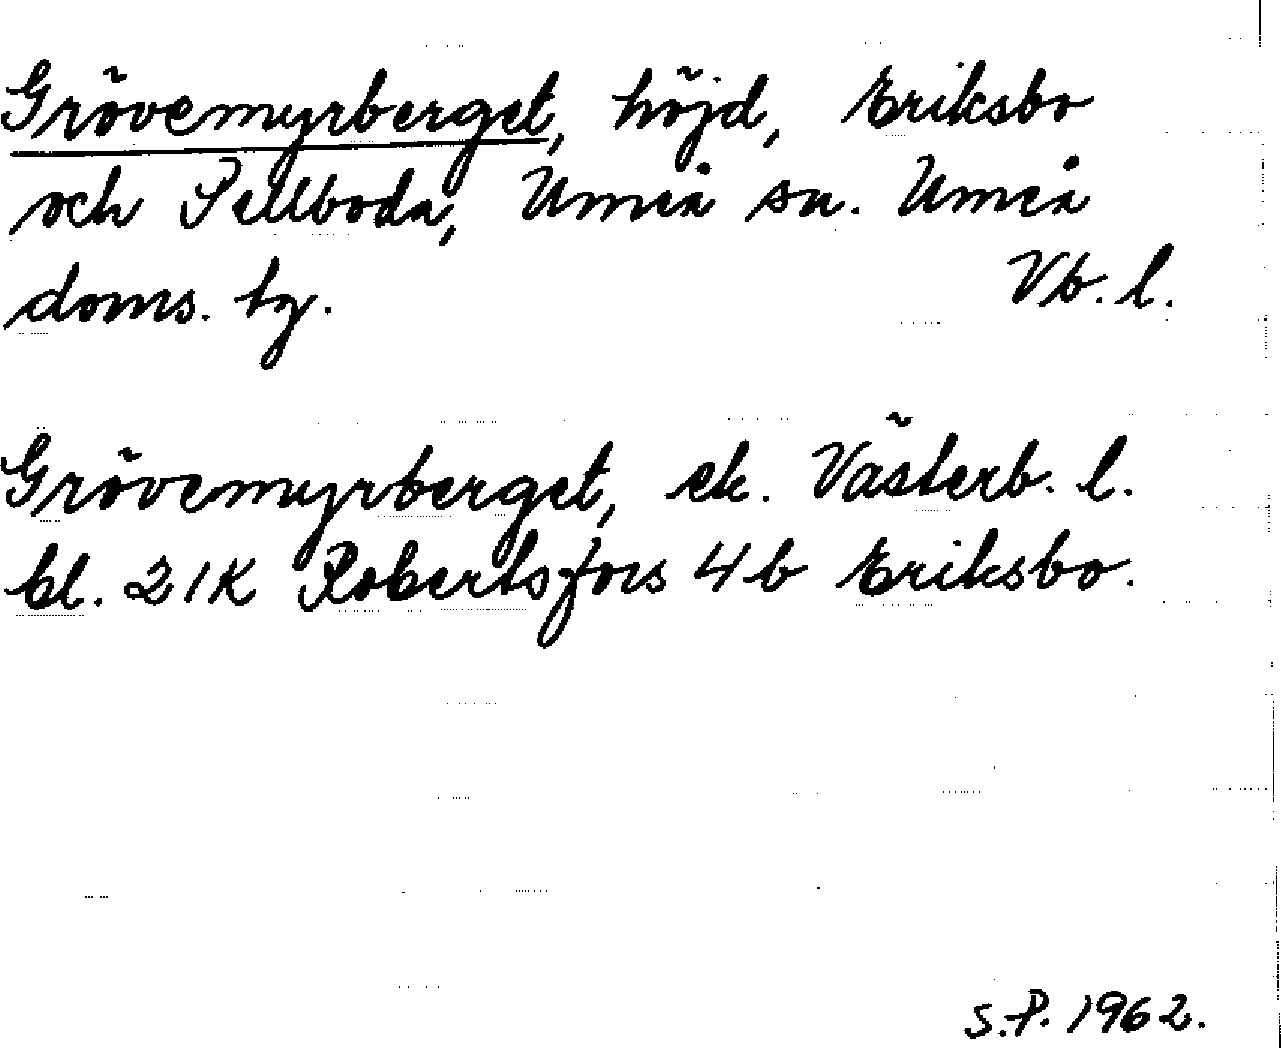 Grövemyrberget, höjd, Eriksbo
och Pellboda, Umeå sn. Umeå
doms. hg. Vb. l.
Grövemyrberget, ek. Västerb. l.
bl. 21K Robertsfors 4b Eriksbo.
S.P. 1962.